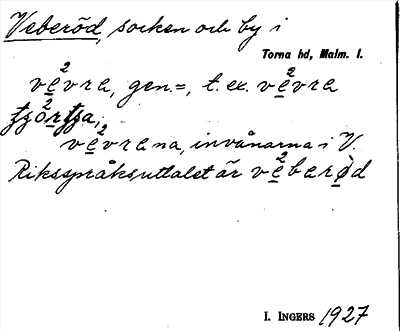 Veberöd, socken och by i
Torna hd, Malm. l.
ve²vra, gen.=, t. ex. ve²vra
vevrana, invånarna i V.
Riksspråksuttalet är ve²berød
I. INGERS 1927